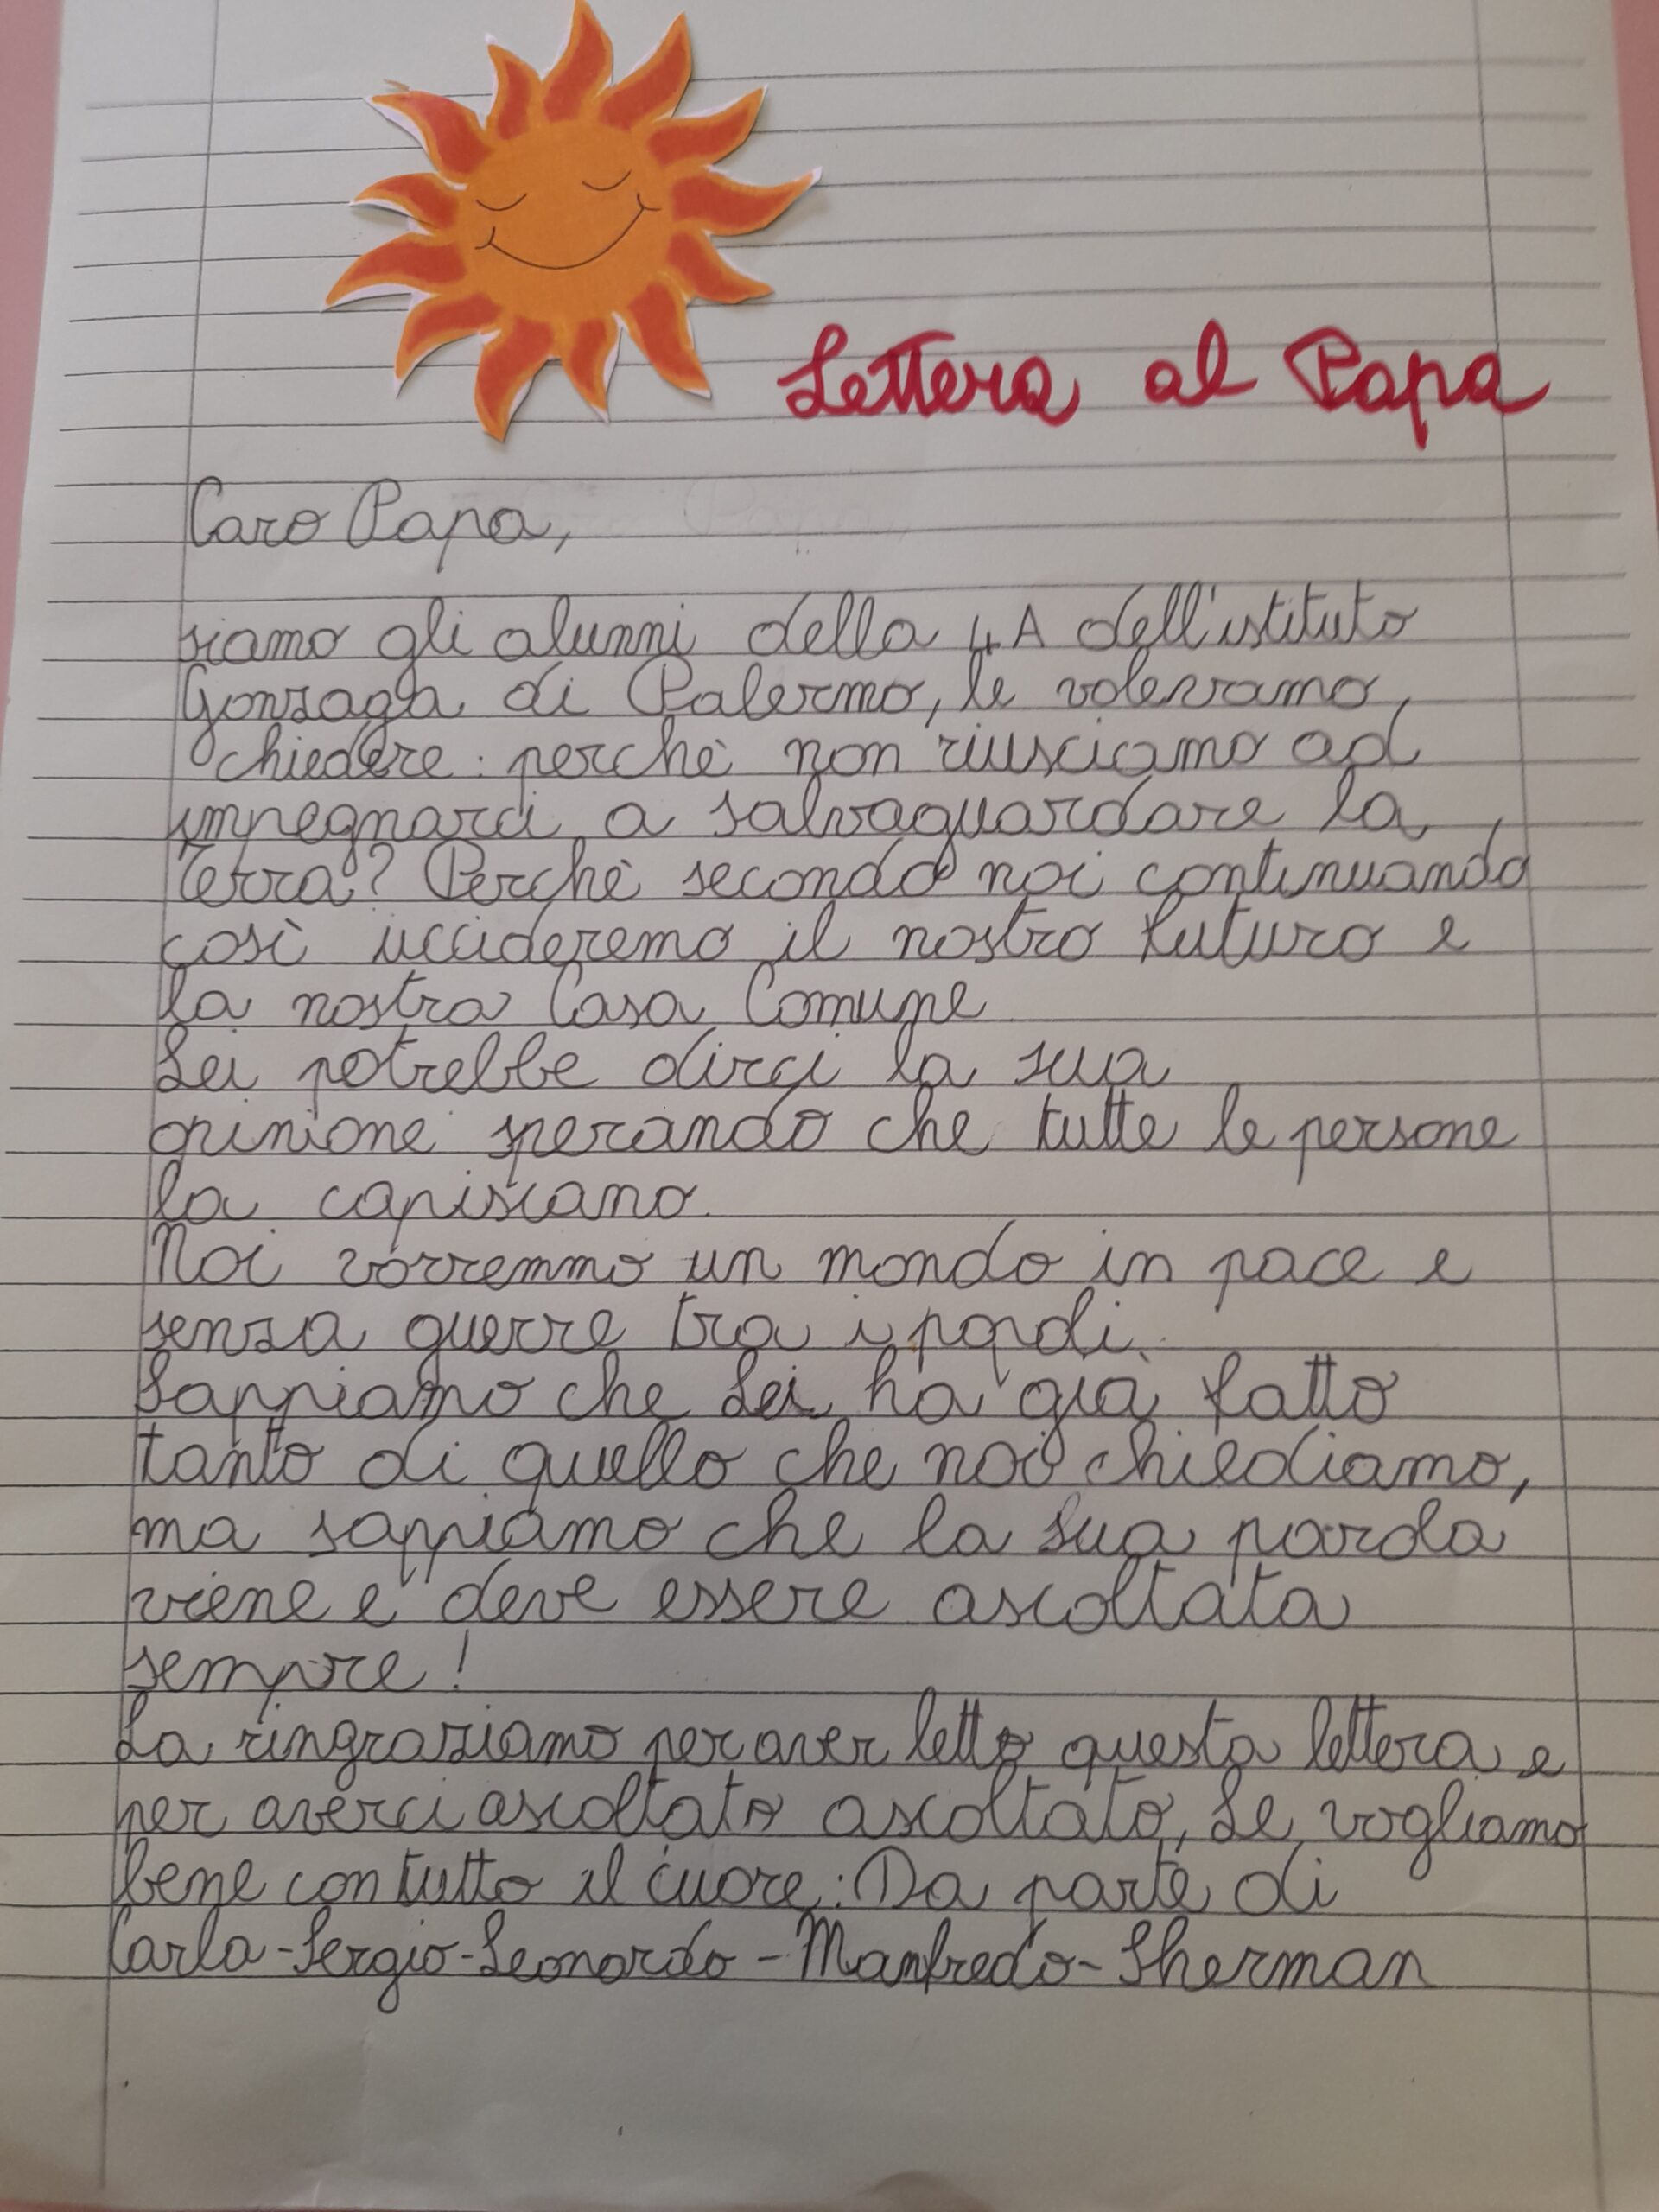 Lettera al Papa
Caro Papa,
siamo gli alunni della 4A dell'istituto
Gonzaga di Palermo, le volevamo
chiedere: perchè non riusciamo ad
impegnarci a salvaguardare la
Terra? Perchè secondo noi continuando
così uccideremo il nostro futuro e
la nostra Casa Comune
Lei potrebbe dirci la sua
opinione sperando che tutte le persone
la capiscano.
Noi vorremmo un mondo in pace e
senza guerre tra i popoli.
Sappiamo che Lei ha già fatto
tanto di quello che noi chiediamo,
ma sappiamo che la Sua parola
viene e deve essere ascoltata
sempre!
La ringraziamo per aver letto questa lettera e
per averci ascoltato ascoltato, Le vogliamo
bene con tutto il cuore: Da parte di
Carla-Sergio-Leonardo-Manfredo-Sherman